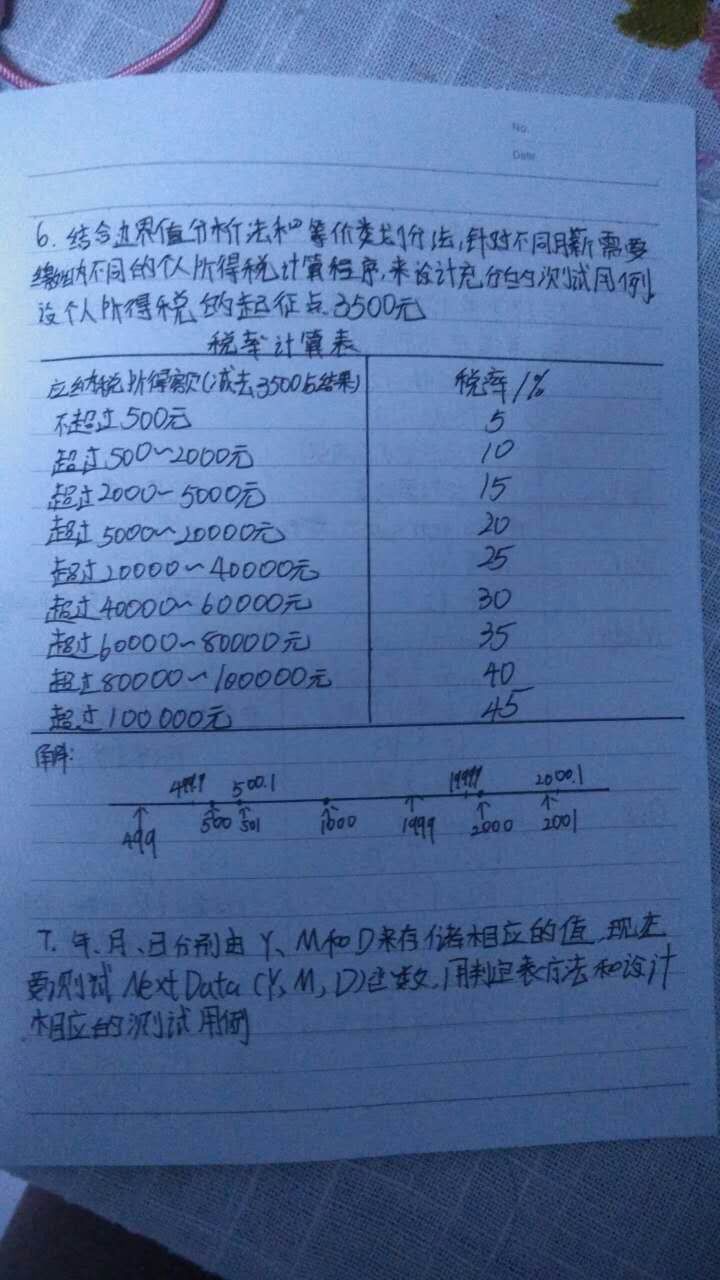 No.
Date
6. 结合边界值分析法和等价类划分法,针对不同月薪需要
缴纳不同的个人所得税计算程序,来设计充分的测试用例.
设个人所得税的起征点3500元
税率计算表
应纳税所得额(减去3500后结果) 税率/%
不超过500元 5
超过500~2000元 10
超过2000~5000元 15
超过5000~20000元 20
超过20000~40000元 25
超过40000~60000元 30
超过60000~80000元 35
超过80000~100000元 40
超过100000元 45
解:
499.9 500.1 1999.9 2000.1
499 500 501 1000 1999 2000 2001
7. 年、月、日分别由Y、M和D来存储相应的值,现在
要测试NextData(Y,M,D)函数,用判定表方法和设计
相应的测试用例